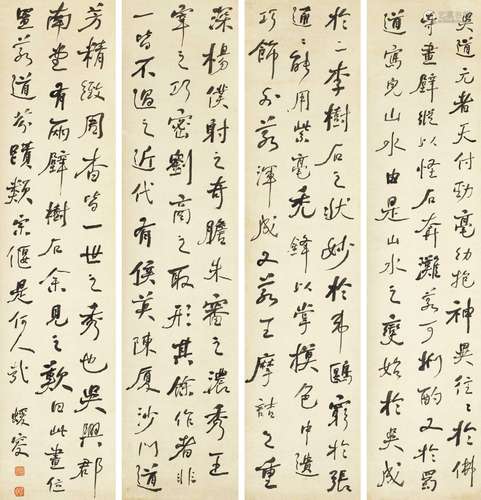 吳道元者天付勁毫幼抱神奧往〻於佛
寺畫壁縱以怪石奔灘若可捫酌又於蜀
道寫皃山水由是山水之變始於吳成
於二李樹石之狀妙於韋鷗窮於張
通〻能用紫毫禿鋒以掌模色中遺
巧飾外若渾成又若王摩詰之重
深楊僕射之奇贍朱審之濃秀王
宰之巧密劉商之取形其餘作者非
一皆不過之近代有侯莫陳厦沙門道
芬精緻周沓皆一世之秀也吳興郡
南堂有兩壁樹石余見之歎曰此畫位
置若道芬蹟類宗偃是何人哉 蝯叟